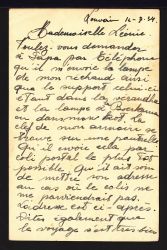 Louvain 10-9-24.
Mademoiselle Léonie.
Voulez-vous demander
à Papa par téléphone
qu'il m'envoie la lampe
de mon réchaud ainsi
que le support celui-ci
étant dans la véranda
et la lampe à
ou dans mon la
clef de mon armoire se
trouve sur une
Qu'il envoie cela par
coli postal le plus tôt
possible. Qu'il ait soin
de mettre son adresse
au cas où le colis ne
me parviendrait pas.
L'adresse est ci-après.
Dites également que
le voyage s'est très bien